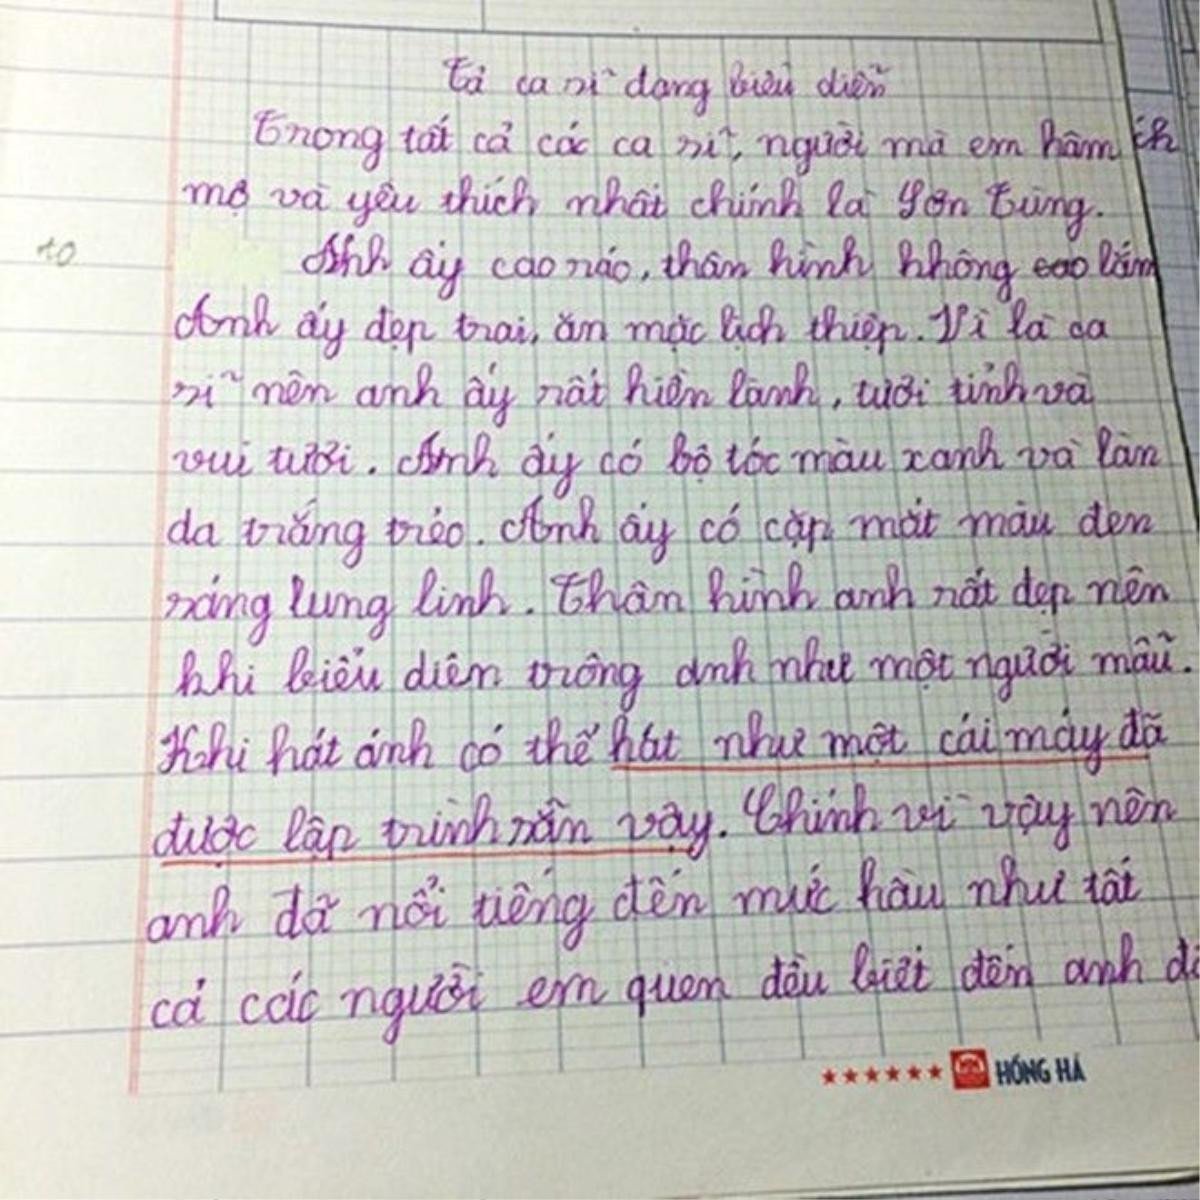 Tả ca sĩ đang biểu diễn
Trong tất cả các ca sĩ, người mà em hâm ích
mộ và yêu thích nhất chính là Sơn Tùng.
10
Anh ấy cao ráo, thân hình không cao lắm
Anh ấy đẹp trai, ăn mặc lịch thiệp. Vì là ca
sĩ nên anh ấy rất hiền lành, tươi tỉnh và
vui tươi. Anh ấy có bộ tóc màu xanh và làn
da trắng trẻo. Anh ấy có cặp mắt màu đen
sáng lung linh. Thân hình anh rất đẹp nên
khi biểu diễn trông anh như một người mẫu.
Khi hát ánh có thể hát như một cái máy đã
được lập trình sẵn vậy. Chính vì vậy nên
anh đã nổi tiếng đến mức hầu như tất
cả các người em quen đều biết đến anh
HỒNG HÀ